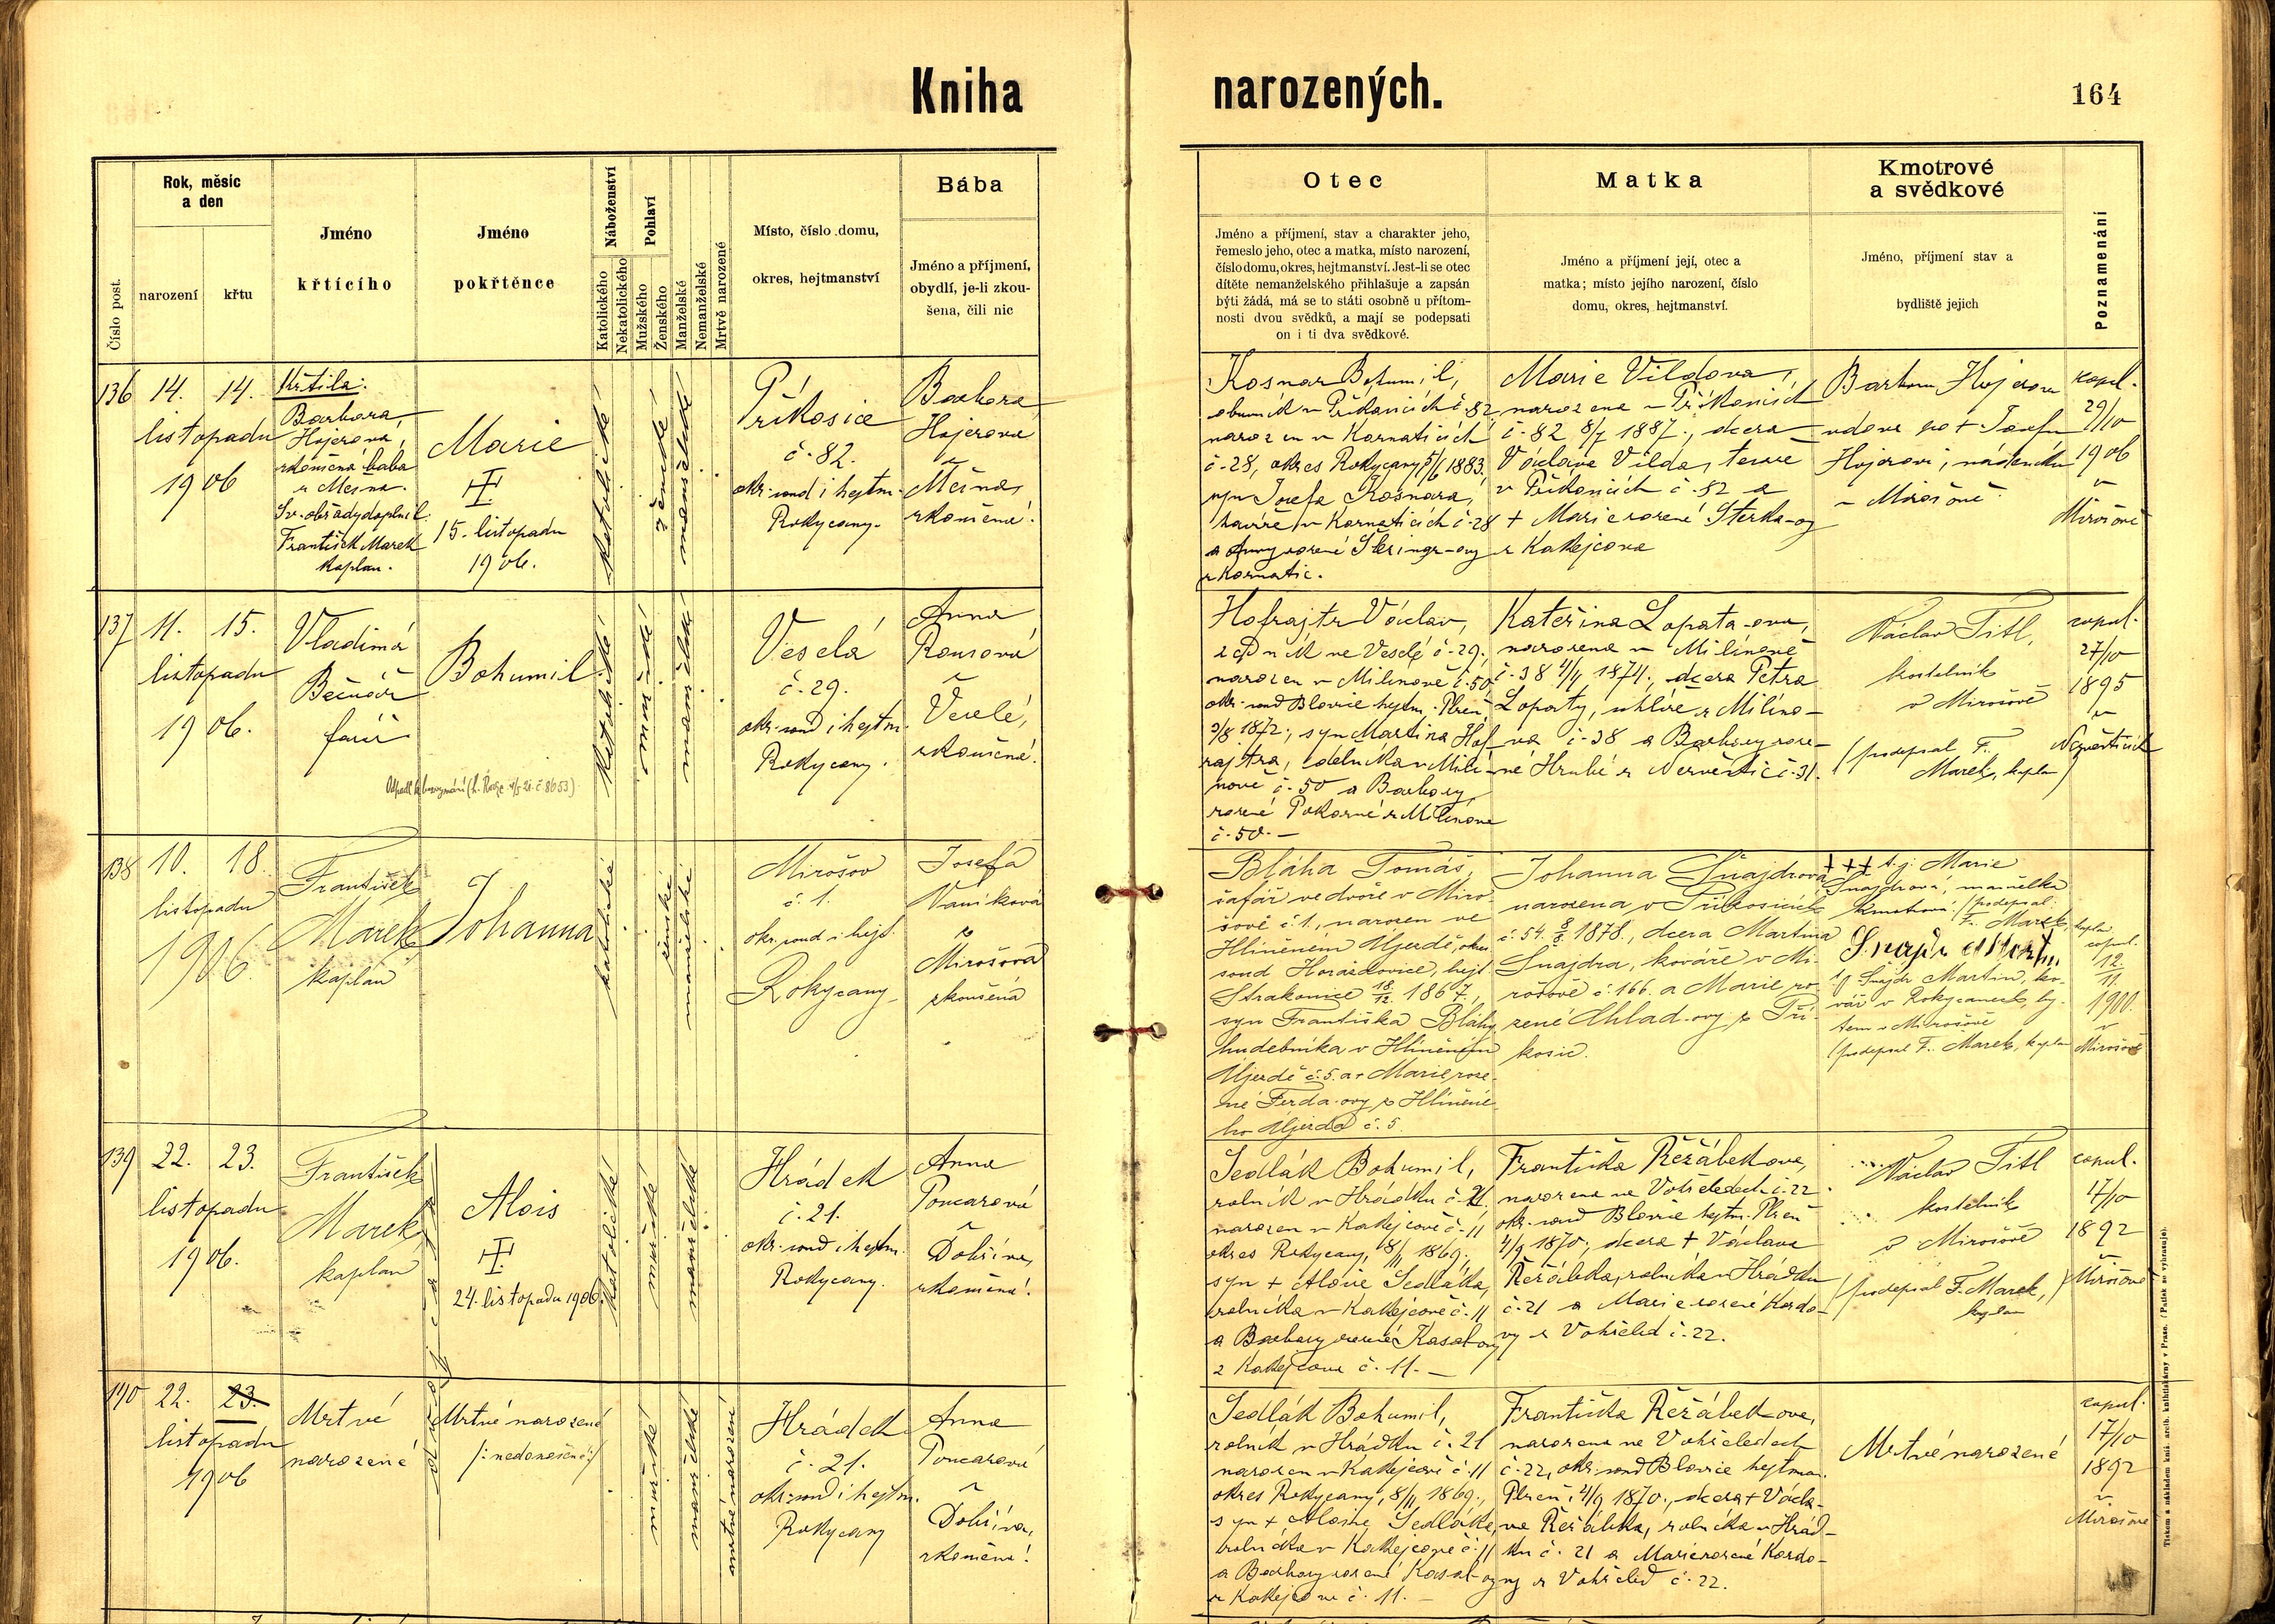 Kniha narozených.
164
Číslo post.
Rok, měsíc
a den
narození
křtu
Jméno
křtícího
Jméno
pokřtěnce
Náboženství
Katolického
Nekatolického
Pohlaví
Mužského
Ženského
Manželské
Nemanželské
Mrtvě narozené
Místo, číslo domu,
okres, hejtmanství
Bába
Jméno a příjmení,
obydlí, je-li zkou-
šena, čili nic
Otec
Jméno a příjmení, stav a charakter jeho,
řemeslo jeho, otec a matka, místo narození,
číslo domu, okres, hejtmanství. Jest-li se otec
dítěte nemanželského přihlašuje a zapsán
býti žádá, má se to státi osobně u přítom-
nosti dvou svědků, a mají se podepsati
on i ti dva svědkové.
Matka
Jméno a příjmení její, otec a
matka; místo jejího narození, číslo
domu, okres, hejtmanství.
Kmotrové
a svědkové
Jméno, příjmení stav a
bydliště jejich
Poznamenání
136
14. 14.
listopadu
1906
Křtila:
Barbora
Hojerová,
zkoušená baba
z Mešna.
Sv. obřady doplnil:
František Marek
kaplan.
Marie
15. listopadu
1906.
katolické
ženské
manželské
Příkosice
č. 82.
okr. soud i hejtm.
Rokycany.
Barbora
Hojerova
z Mešna,
zkoušená.
Kosnar Bohumil,
obuvník v Příkosicích č. 82
narozen v Kornaticích
č. 28, okres Rokycany 5/6 1883.
syn Josefa Kosnara,
havíře v Kornaticích č. 28
z Kornatic.
Marie Vildova,
narozena v Příkosicích
č. 82 8/7 1887., dcera
Václava Vildy, tesaře
v Příkosicích č. 82 a
+ Marie rozené Sterka-ovy
z Kakejcova
Barbora Hojerova
vdova po + Josefu
Hojerovi, nádeníku
v Mirošově.
kopul.
29/10
1906
v
Mirošově
137
11. 15.
listopadu
1906.
Vladimír
Bečvář
farář
Bohumil
katolické
mužské
manželské
Veselá
č. 29.
okr. soud i hejtm.
Rokycany.
Anna
Rousová
z Veselé,
zkoušená.
Hofrajtr Václav,
zedník ve Veselé č. 29.,
narozen v Milínově č. 50,
okr. soud Blovice hejtm. Plzeň
3/8 1872., syn Martina Hof-
rajtra, dělníka v Milí-
nově č. 50 a Barbory
rozené Pokorné z Milínova
č. 50. —
Kateřina Lopata-ova,
narozena v Milínově
č. 38 4/4 1874., dcera Petra
Lopaty, uhlíře z Milíno-
va č. 38 a Barbory roze-
né Hrubé z Nezvěstic č. 31.
Václav Titl,
kostelník
v Mirošově
(podepsal F.
Marek, kaplan)
copul.
27/10
1895
v
Nezvěsticích
138
10. 18.
listopadu
1906.
František
Marek
kaplan
Johanna
katolické
ženské
manželské
Mirošov
č. 1.
okr. soud i hejt.
Rokycany
Josefa
Vaníková
z
Mirošova
zkoušená
Bláha Tomáš,
šafář ve dvoře v Miro-
šově č. 1., narozen ve
Hliněném Újezdě, okr.
soud Horažďovice, hejt.
Strakonice 18/12 1867.,
syn Františka Bláhy
hudebníka v Hliněném
Újezdě č. 5. a + Marie roze-
né Ferda-ovy z Hliněné-
ho Újezda č. 5.
Johanna Šnajdrová
narozena v Příkosicích
č. 54. 8/8. 1878., dcera Martina
Šnajdra, kováře v Mi-
rošově č. 166. a Marie ro-
zené Chlad-ovy z Pří-
kosic.
+++ t. j. Marie
Šnajdrova, manželka
kmotrova. (podepsal:
F. Marek, kaplan
Šnajdr Martin
t. j. Šnajdr Martin, ko-
vář v Rokycanech, by-
tem v Mirošově
(podepsal F. Marek, kaplan
copul.
12/11.
1900.
v
Mirošově
139
22. 23.
listopadu
1906.
František
Marek
kaplan
Alois
24. listopadu 1906.
katolické
mužské
manželské
Hrádek
č. 21.
okr. soud i hejtm.
Rokycany.
Anna
Poncarová
z Dobříva,
zkoušená.
Sedlák Bohumil,
rolník v Hrádku č. 21,
narozen v Kakejcově č. 11
okres Rokycany, 8/11 1869.,
syn + Aloise Sedláka,
rolníka v Kakejcově č. 11
a Barbory rozené Kasal-ovy
z Kakejcova č. 11. —
Františka Řeřábekova,
narozena ve Vohřeledech č. 22
okr. soud Blovice hejtm. Plzeň
4/9 1870., dcera + Václava
Řeřábka, rolníka v Hrádku
č. 21 a Marie rozené Kordo-
vy z Vohřeled č. 22.
Václav Titl
kostelník
v Mirošově
(podepsal F. Marek,)
kaplan
copul.
17/10
1892
v
Mirošově
140
22. 23.
listopadu
1906
Mrtvé
narozené
Mrtvě narozené
/: nedonošené :/
mužské
manželské
mrtvě narozené
Hrádek
č. 21.
okr. soud i hejtm.
Rokycany
Anna
Poncarová
z Dobříva,
zkoušená.
Sedlák Bohumil,
rolník v Hrádku č. 21
narozen v Kakejcově č. 11
okres Rokycany, 8/11 1869.,
syn + Aloise Sedláka,
rolníka v Kakejcově č. 11
a Barbory rozené Kasal-ovy
z Kakejcova č. 11. —
Františka Řeřábekova,
narozena ve Vohřeledech
č. 22, okr. soud Blovice hejtman.
Plzeň, 4/9 1870., dcera + Václa-
va Řeřábka, rolníka v Hrád-
ku č. 21 a Marie rozené Kordo-
vy z Vohřeled č. 22.
Mrtvě narozené
copul.
17/10
1892
v
Mirošově
Tiskem a nákladem kníž. arcib. knihtiskárny v Praze. (Patisk se vyhrazuje).